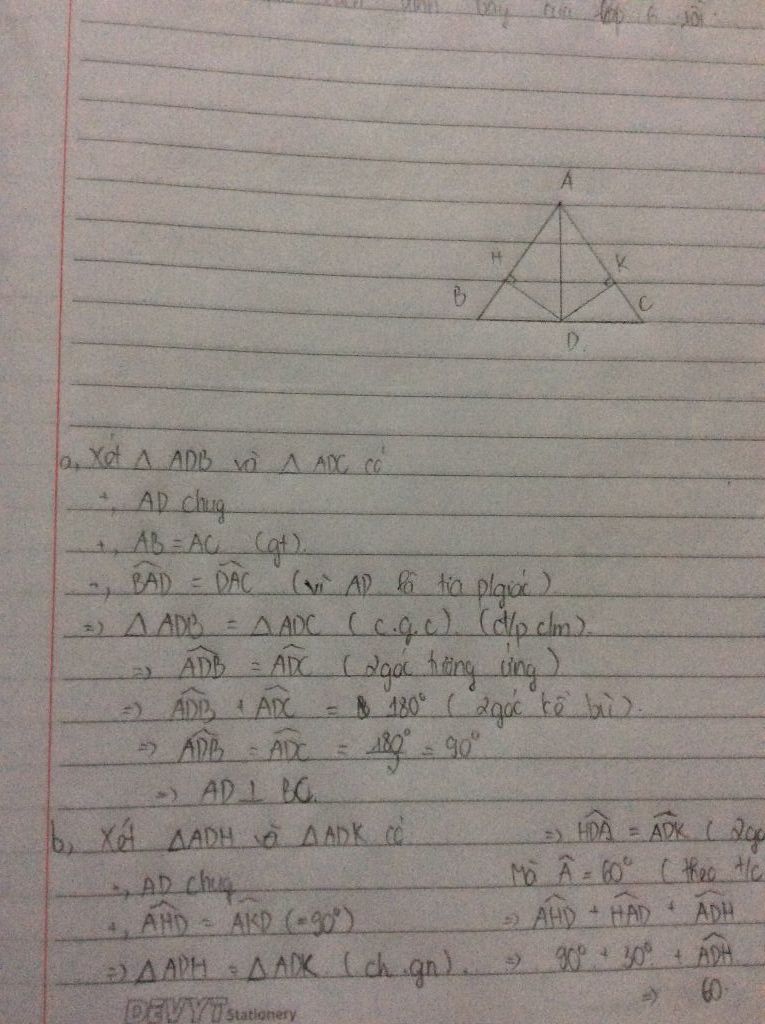 lớp 6 rồi.
A
H
K
B
C
D
a, Xét Δ ADB và Δ ADC có
+, AD chug
+, AB = AC (gt).
+, BAD = DAC (vì AD là tia p/giác)
=> Δ ADB = Δ ADC (c.g.c). (đ/p c/m).
=> ADB = ADC (2 góc tương ứng)
=> ADB + ADC = 180° (2 góc kề bù).
=> ADB = ADC = 180°/2 = 90°
=> AD ⊥ BC.
b, Xét ΔADH và ΔADK có
+, AD chug
+, AHD = AKD (=90°)
=> ΔADH = ΔADK (ch.gn).
=> HDA = ADK (2 gó
Mà A = 60° (theo t/c
=> AHD + HAD + ADH
=> 90° + 30° + ADH
=> 60
DEVYT Stationery